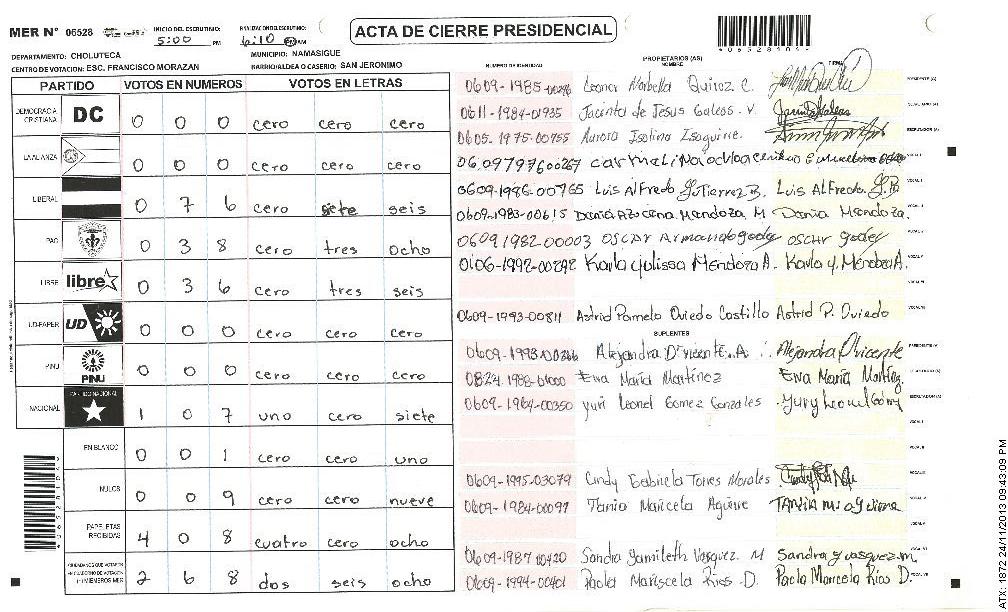 MER Nº 06528
INICIO DEL ESCRUTINIO: 5:00 PM
FINALIZACION DEL ESCRUTINIO: 6:10 PM
ACTA DE CIERRE PRESIDENCIAL
DEPARTAMENTO: CHOLUTECA
MUNICIPIO: NAMASIGUE
CENTRO DE VOTACION: ESC. FRANCISCO MORAZAN
BARRIO/ALDEA O CASERIO: SAN JERONIMO
PARTIDO VOTOS EN NUMEROS VOTOS EN LETRAS
DEMOCRACIA CRISTIANA DC 0 0 0 cero cero cero
LA ALIANZA 0 0 0 cero cero cero
LIBERAL 0 7 6 cero siete seis
PAC 0 3 8 cero tres ocho
LIBRE libre 0 3 6 cero tres seis
UD-FAPER UD 0 0 0 cero cero cero
PINU PINU 0 0 0 cero cero cero
NACIONAL PARTIDO NACIONAL 1 0 7 uno cero siete
EN BLANCO 0 0 1 cero cero uno
NULOS 0 0 9 cero cero nueve
PAPELETAS RECIBIDAS 4 0 8 cuatro cero ocho
CIUDADANOS QUE VOTARON 2 6 8 dos seis ocho
NUMERO DE IDENTIDAD
PROPIETARIOS (AS)
NOMBRE
FIRMA
0609-1985-00296 Leonor Marbella Quiroz C.
0611-1984-01935 Jacinta de Jesus Galeas. V.
0605-1975-00755 Aurora Isolina Isaguirre.
0609797600267
0609-1986-00765 Luis Alfredo Gutierrez B. Luis Alfredo. G.B
0609-1983-00615 Dania Azucena Mendoza M Dania Mendoza.
06091982-00003 OSCAR Armando godoy OSCAR godoy
0106-1992-00292 Karla Yolissa Mendoza A. Karla Y. Mendoza A.
0609-1993-00811 Astrid Pamela Oviedo Castillo Astrid P. Oviedo
SUPLENTES
0609-1993-00266 Alejandra D'vicente. A Alejandra D'vicente
0824-1988-01000 Eva Maria Martinez Eva Maria Martinez
0609-1964-00350 Yuri Leonel Gomez Gonzales
0609-1995-03079 Cindy Gabriela Torres Morales
0609-1984-00097 Tania Maricela Aguirre
0609-1987-00420 Sandra Yamileth Vasquez. M Sandra y vasquez.m
0609-1994-00401 Paola Mariscela Rios D. Paola Marcela Rios D.
ATX: 1872 24/11/2013 09:43:09 PM